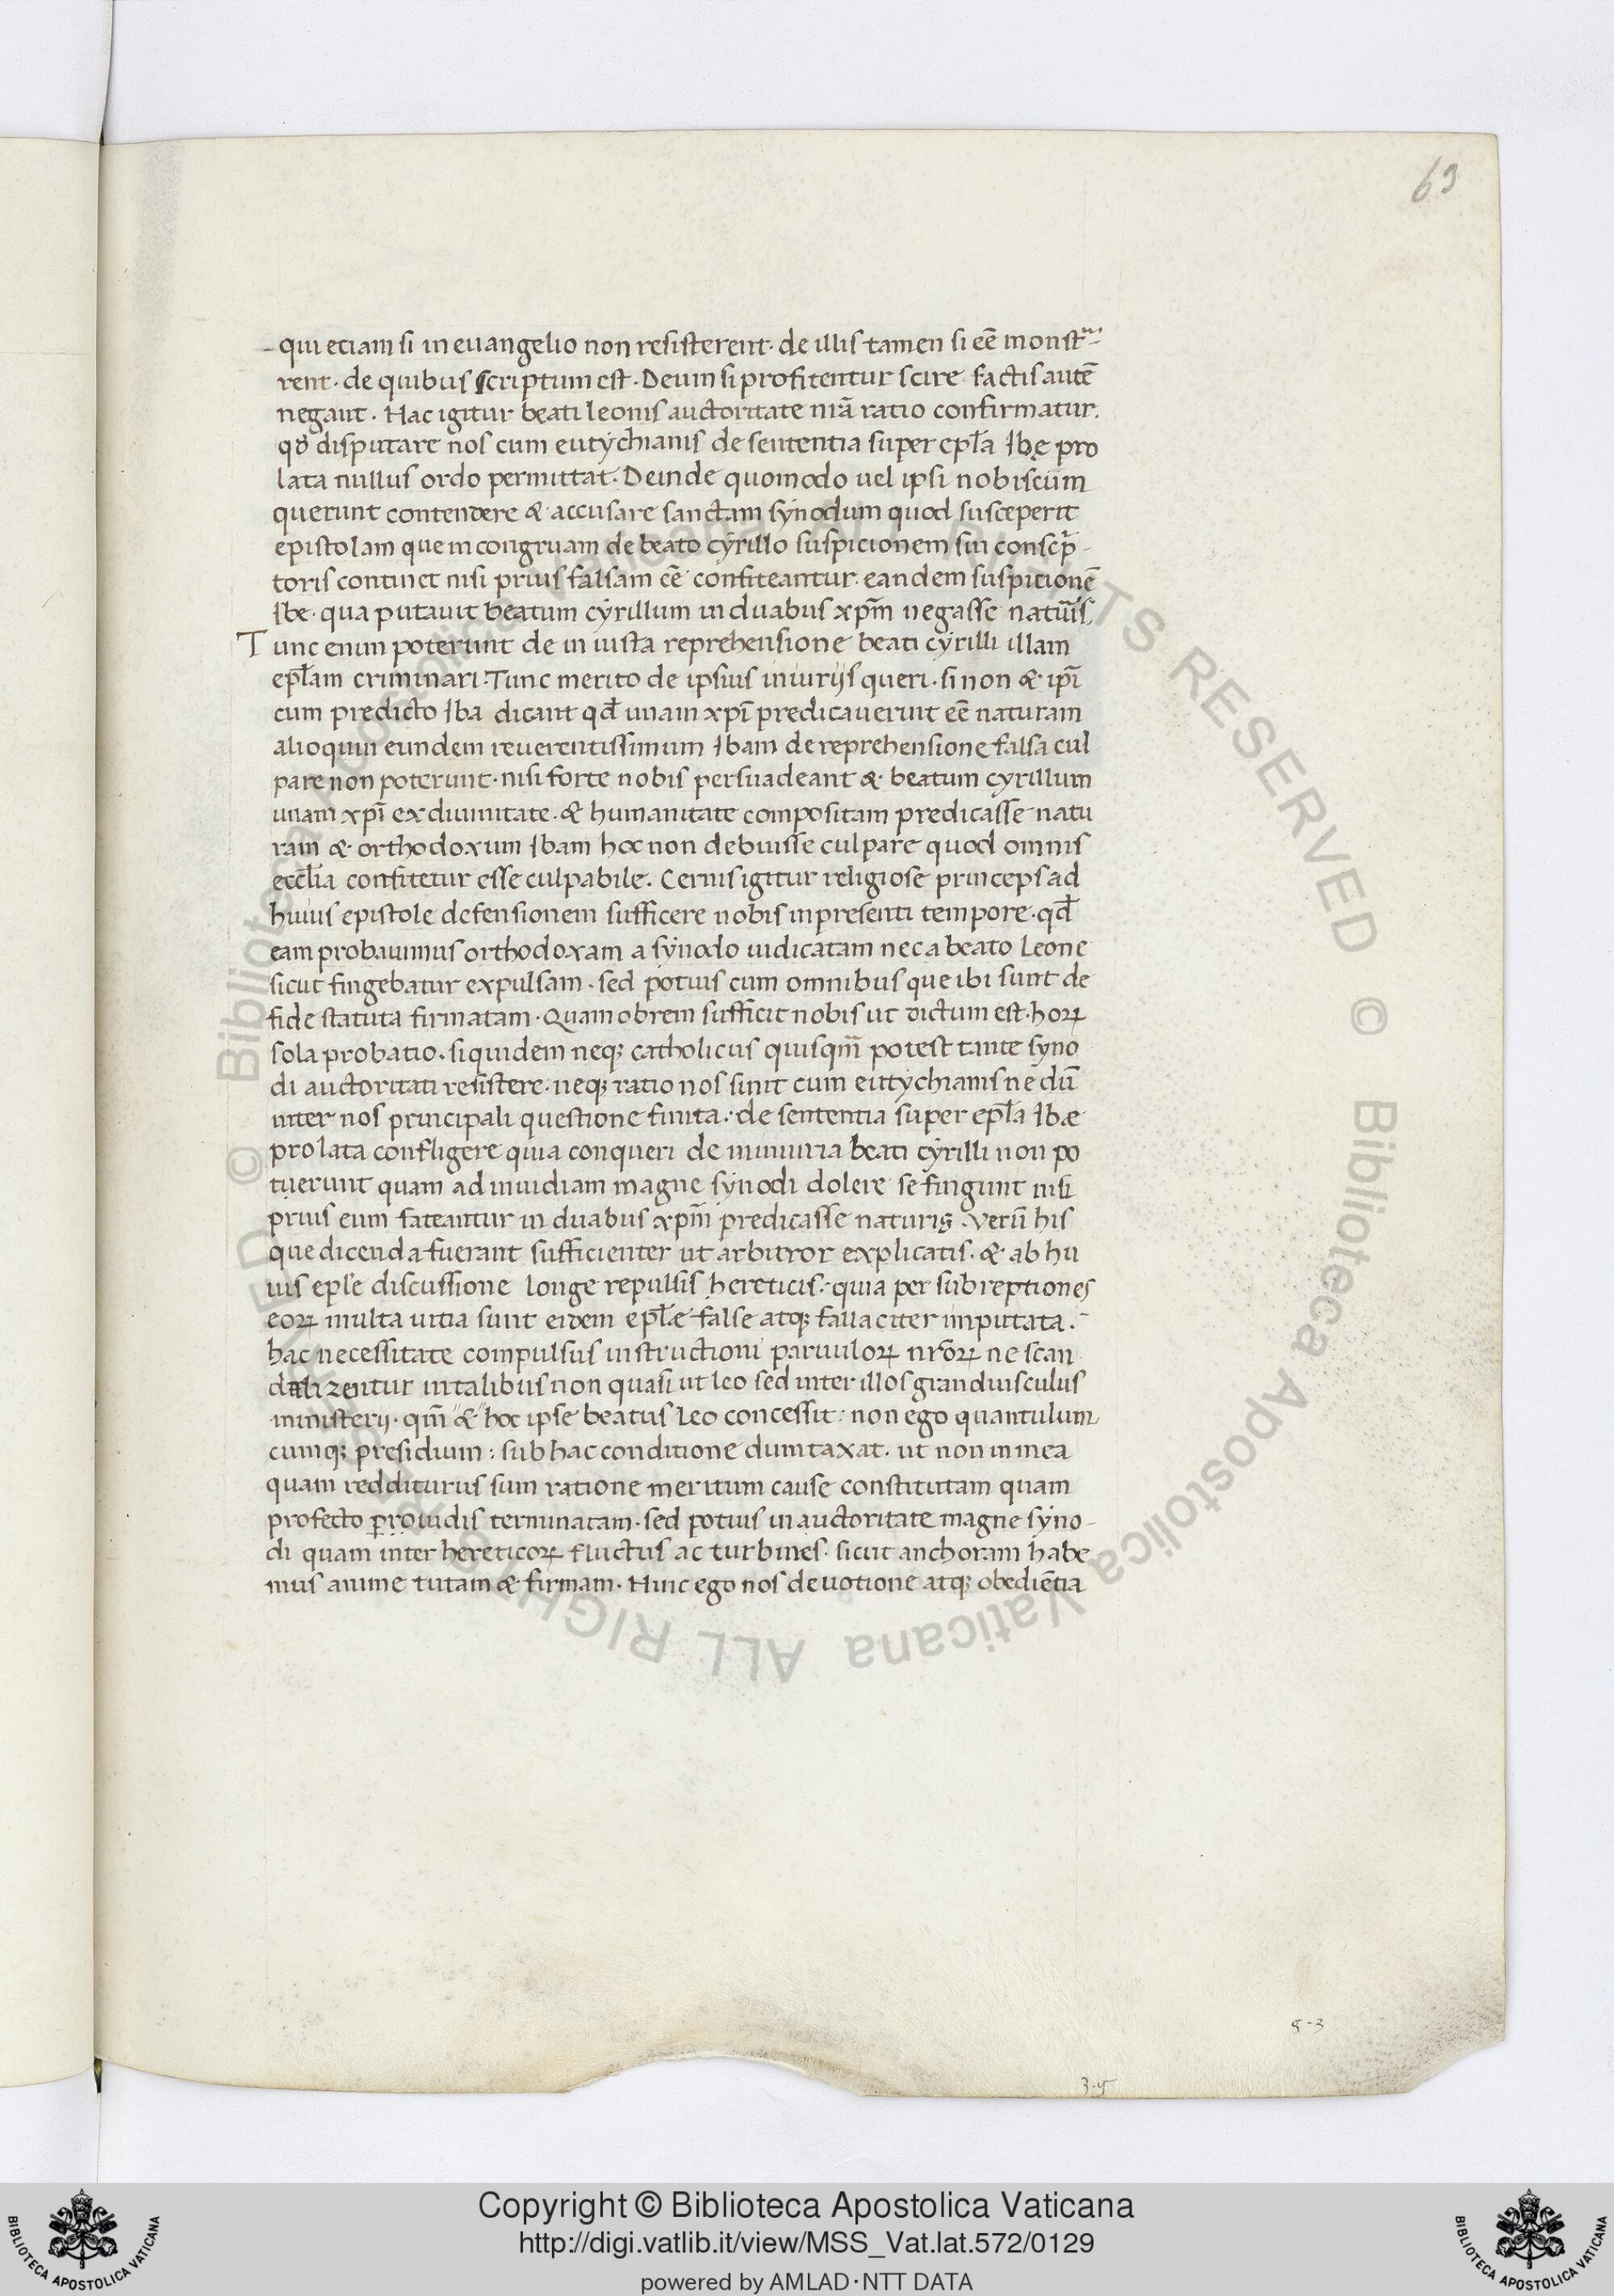 63
qui etiam si in euangelio non resisterent· de illis tamen si eē monstra-
rent· de quibus scriptum est· Deum si profitentur scire factis autē
negant· Hac igitur beati leonis auctoritate nrā ratio confirmatur.
qđ disputare nos cum eutychianis de sententia super epła Ibę pro
lata nullus ordo permittat· Deinde quomodo uel ipsi nobiscum
querunt contendere & accusare sanctam synodum quod susceperit
epistolam que incongruam de beato cyrillo suspicionem sui conscp̄-
toris continet nisi prius falsam eē confiteantur· eandem suspitionē
Ibe· qua putauit beatum cyrillum in duabus xp̄m negasse naturis
Tunc enim poterunt de iniusta reprehensione beati cyrilli illam
epłam criminari· Tunc merito de ipsius iniurijs queri· si non & ip̄i
cum predicto Iba dicant qđ unam xp̄i predicauerint eē naturam
alioquin eundem reuerentissimum Ibam de reprehensione falsa cul
pare non poterunt· nisi forte nobis persuadeant & beatum cyrillum
unam xp̄i ex diuinitate· & humanitate compositam predicasse natu
ram & orthodoxum Ibam hoc non debuisse culpare quod omnis
eccłia confitetur esse culpabile· Cernis igitur religiose princeps ad
huius epistole defensionem sufficere nobis in presenti tempore· qđ
eam probauimus orthodoxam a synodo iudicatam nec a beato Leone
sicut fingebatur expulsam· sed potius cum omnibus que ibi sunt de
fide statuta firmatam· Quamobrem sufficit nobis ut dictum est· hoꝝ
sola probatio· siquidem neqꝫ catholicus quisqm̄ potest tante syno
di auctoritati resistere· neqꝫ ratio nos sinit cum eutychianis nedū
inter nos principali questione finita: de sententia super epła Ibæ
prolata confligere quia conqueri de iniuria beati cyrilli non po
tuerunt quam ad inuidiam magne synodi dolere se fingunt nisi
prius eum fateantur in duabus xp̄m predicasse naturis· Verū his
que dicenda fuerant sufficienter ut arbitror explicatis· & ab hu
ius epłe discussione longe repulsis hereticis: quia per subreptiones
eoꝝ multa uitia sunt eidem epłæ false atqꝫ fallaciter imputata·
hac necessitate compulsus instructioni paruuloꝝ nr̄oꝝ ne scan
dalizentur in talibus non quasi ut leo sed inter illos grandiusculus
ministerij· qm̄ & hoc ipse beatus Leo concessit: non ego quantulum
cumqꝫ presidium: sub hac conditione dumtaxat· ut non in mea
quam redditurus sum ratione meritum cause constitutam quam
profecto prouidis terminatam· sed potius in auctoritate magne syno-
di quam inter hereticoꝝ fluctus ac turbines· sicut anchoram habe
mus anime tutam & firmam· Hinc ego nos deuotione atqꝫ obediētia
Copyright © Biblioteca Apostolica Vaticana
http://digi.vatlib.it/view/MSS_Vat.lat.572/0129
powered by AMLAD·NTT DATA
BIBLIOTECA APOSTOLICA VATICANA
BIBLIOTECA APOSTOLICA VATICANA
© Biblioteca Apostolica Vaticana ALL RIGHTS RESERVED © Biblioteca Apostolica Vaticana ALL RIGHTS RESERVED